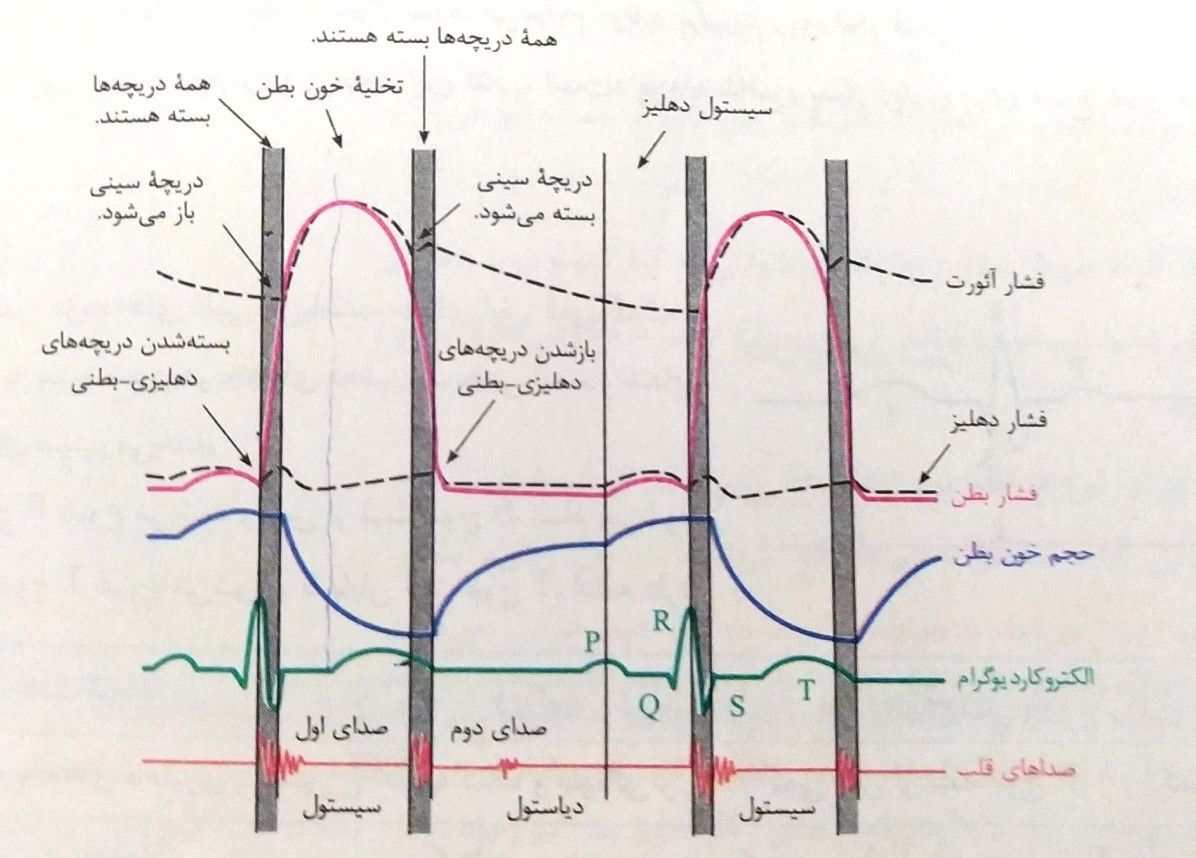 همهٔ دریچه‌ها بسته هستند.
همهٔ دریچه‌ها
بسته هستند.
تخلیهٔ خون بطن
سیستول دهلیز
دریچهٔ سینی
باز می‌شود.
دریچهٔ سینی
بسته می‌شود.
فشار آئورت
بسته‌شدن دریچه‌های
دهلیزی-بطنی
بازشدن دریچه‌های
دهلیزی-بطنی
فشار دهلیز
فشار بطن
حجم خون بطن
P
R
Q
S
T
الکتروکاردیوگرام
صدای اول
صدای دوم
صداهای قلب
سیستول
دیاستول
سیستول